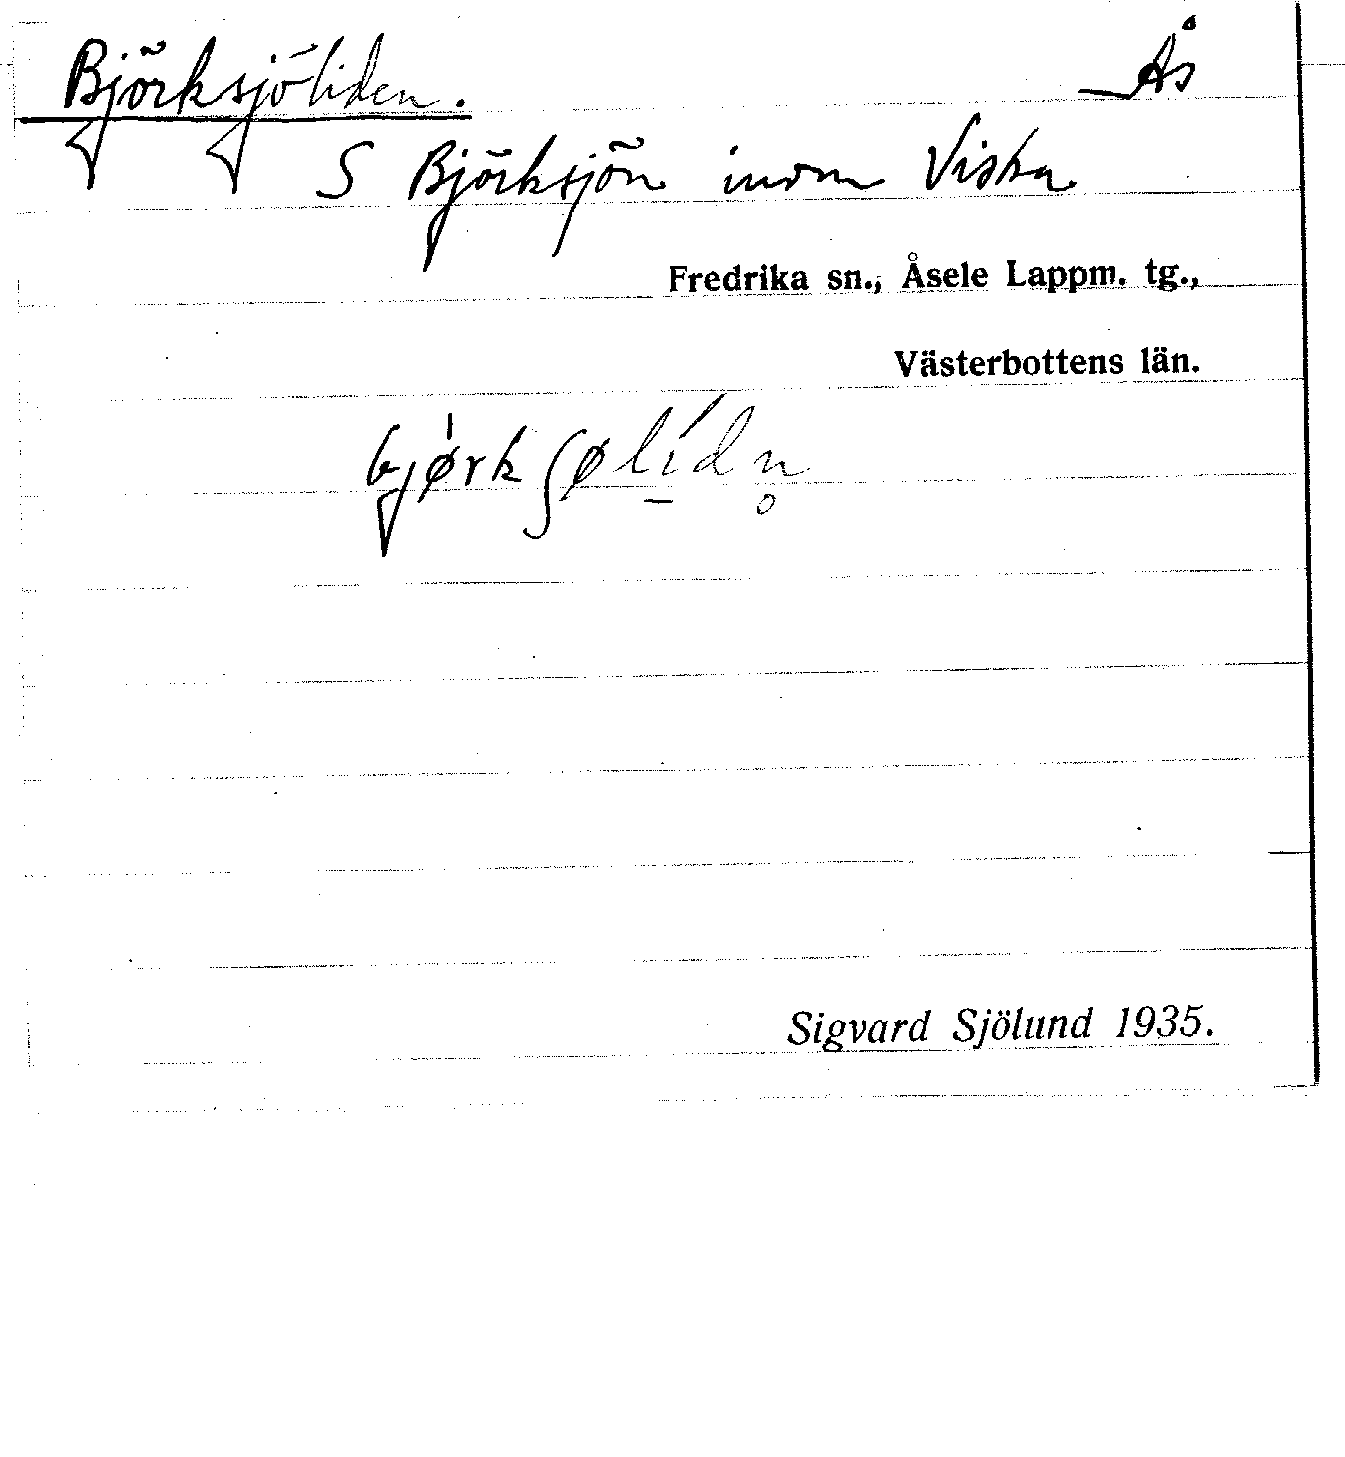 Björksjöliden. Ås
S Björksjön inom Viska
Fredrika sn., Åsele Lappm. tg.,
Västerbottens län.
bjørkʃøli̱dn̥
Sigvard Sjölund 1935.